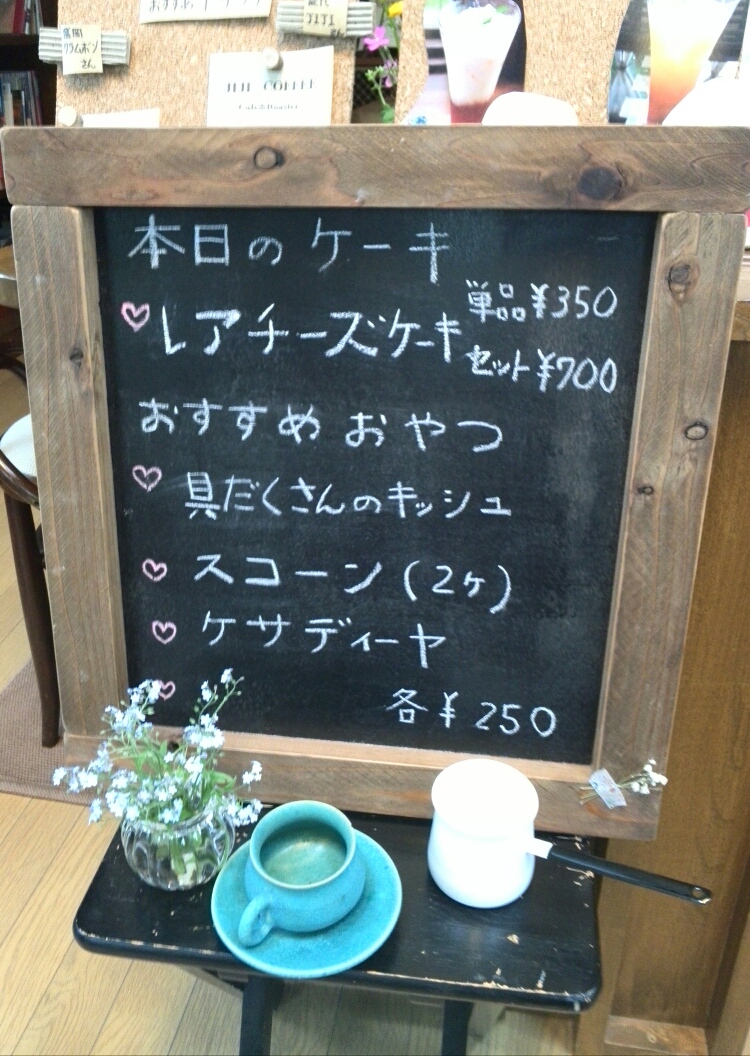 JIJI COFFEE
Cafe&Roaster
本日のケーキ
レアチーズケーキ
単品¥350
セット¥700
おすすめおやつ
具だくさんのキッシュ
スコーン(2ヶ)
ケサディーヤ
各¥250